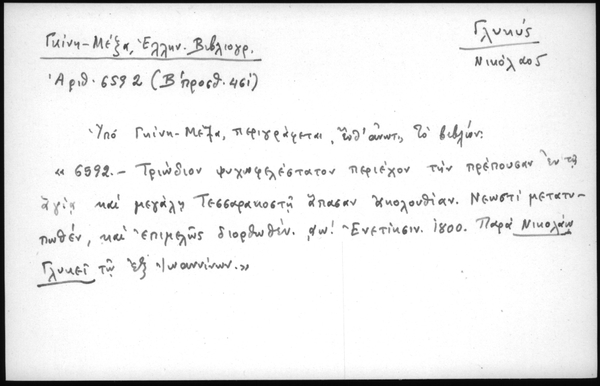 Γλυκύς
Νικόλαος
Γκίνη-Μέξα, Ἑλλην. Βιβλιογρ.
Ἀριθ. 6592 (Β΄ προσθ. 461)
Ὑπό Γκίνη-Μέξα, περιγράφεται, ἔνθ' ἀνωτ., τό βιβλίον:
« 6592.- Τριώδιον ψυχωφελέστατον περιέχον τήν πρέπουσαν ἐν τῇ
ἁγίᾳ καί μεγάλῃ Τεσσαρακοστῇ ἅπασαν ἀκολουθίαν. Νεωστί μετατυ-
πωθέν, καί ἐπιμελῶς διορθωθέν. ͵αω! Ἐνετίησιν. 1800. Παρά Νικολάῳ
Γλυκεῖ τῷ ἐξ Ἰωαννίνων.»